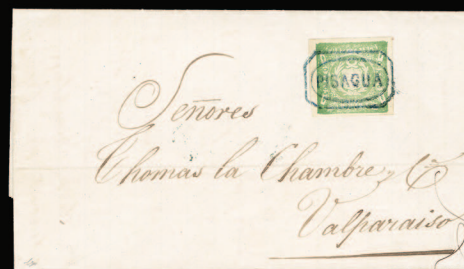 PISAGUA
Señores
Thomas la Chambre y C
Valparaiso